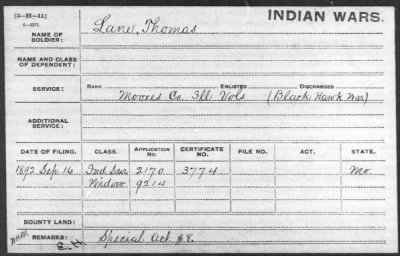 (3-H-41)
INDIAN WARS.
NAME OF SOLDIER: Lane, Thomas
NAME AND CLASS OF DEPENDENT:
SERVICE: NAME ENLISTED DISCHARGED
Moores Co. Ill Vols (Black Hawk War)
ADDITIONAL SERVICE:
DATE OF FILING. CLASS. APPLICATION NO. CERTIFICATE NO. FILE NO. ACT. STATE.
1892 Sep 16 Ind Sur 2170 3774 Mo.
Widow 9214
BOUNTY LAND:
REMARKS: Special Act $8.